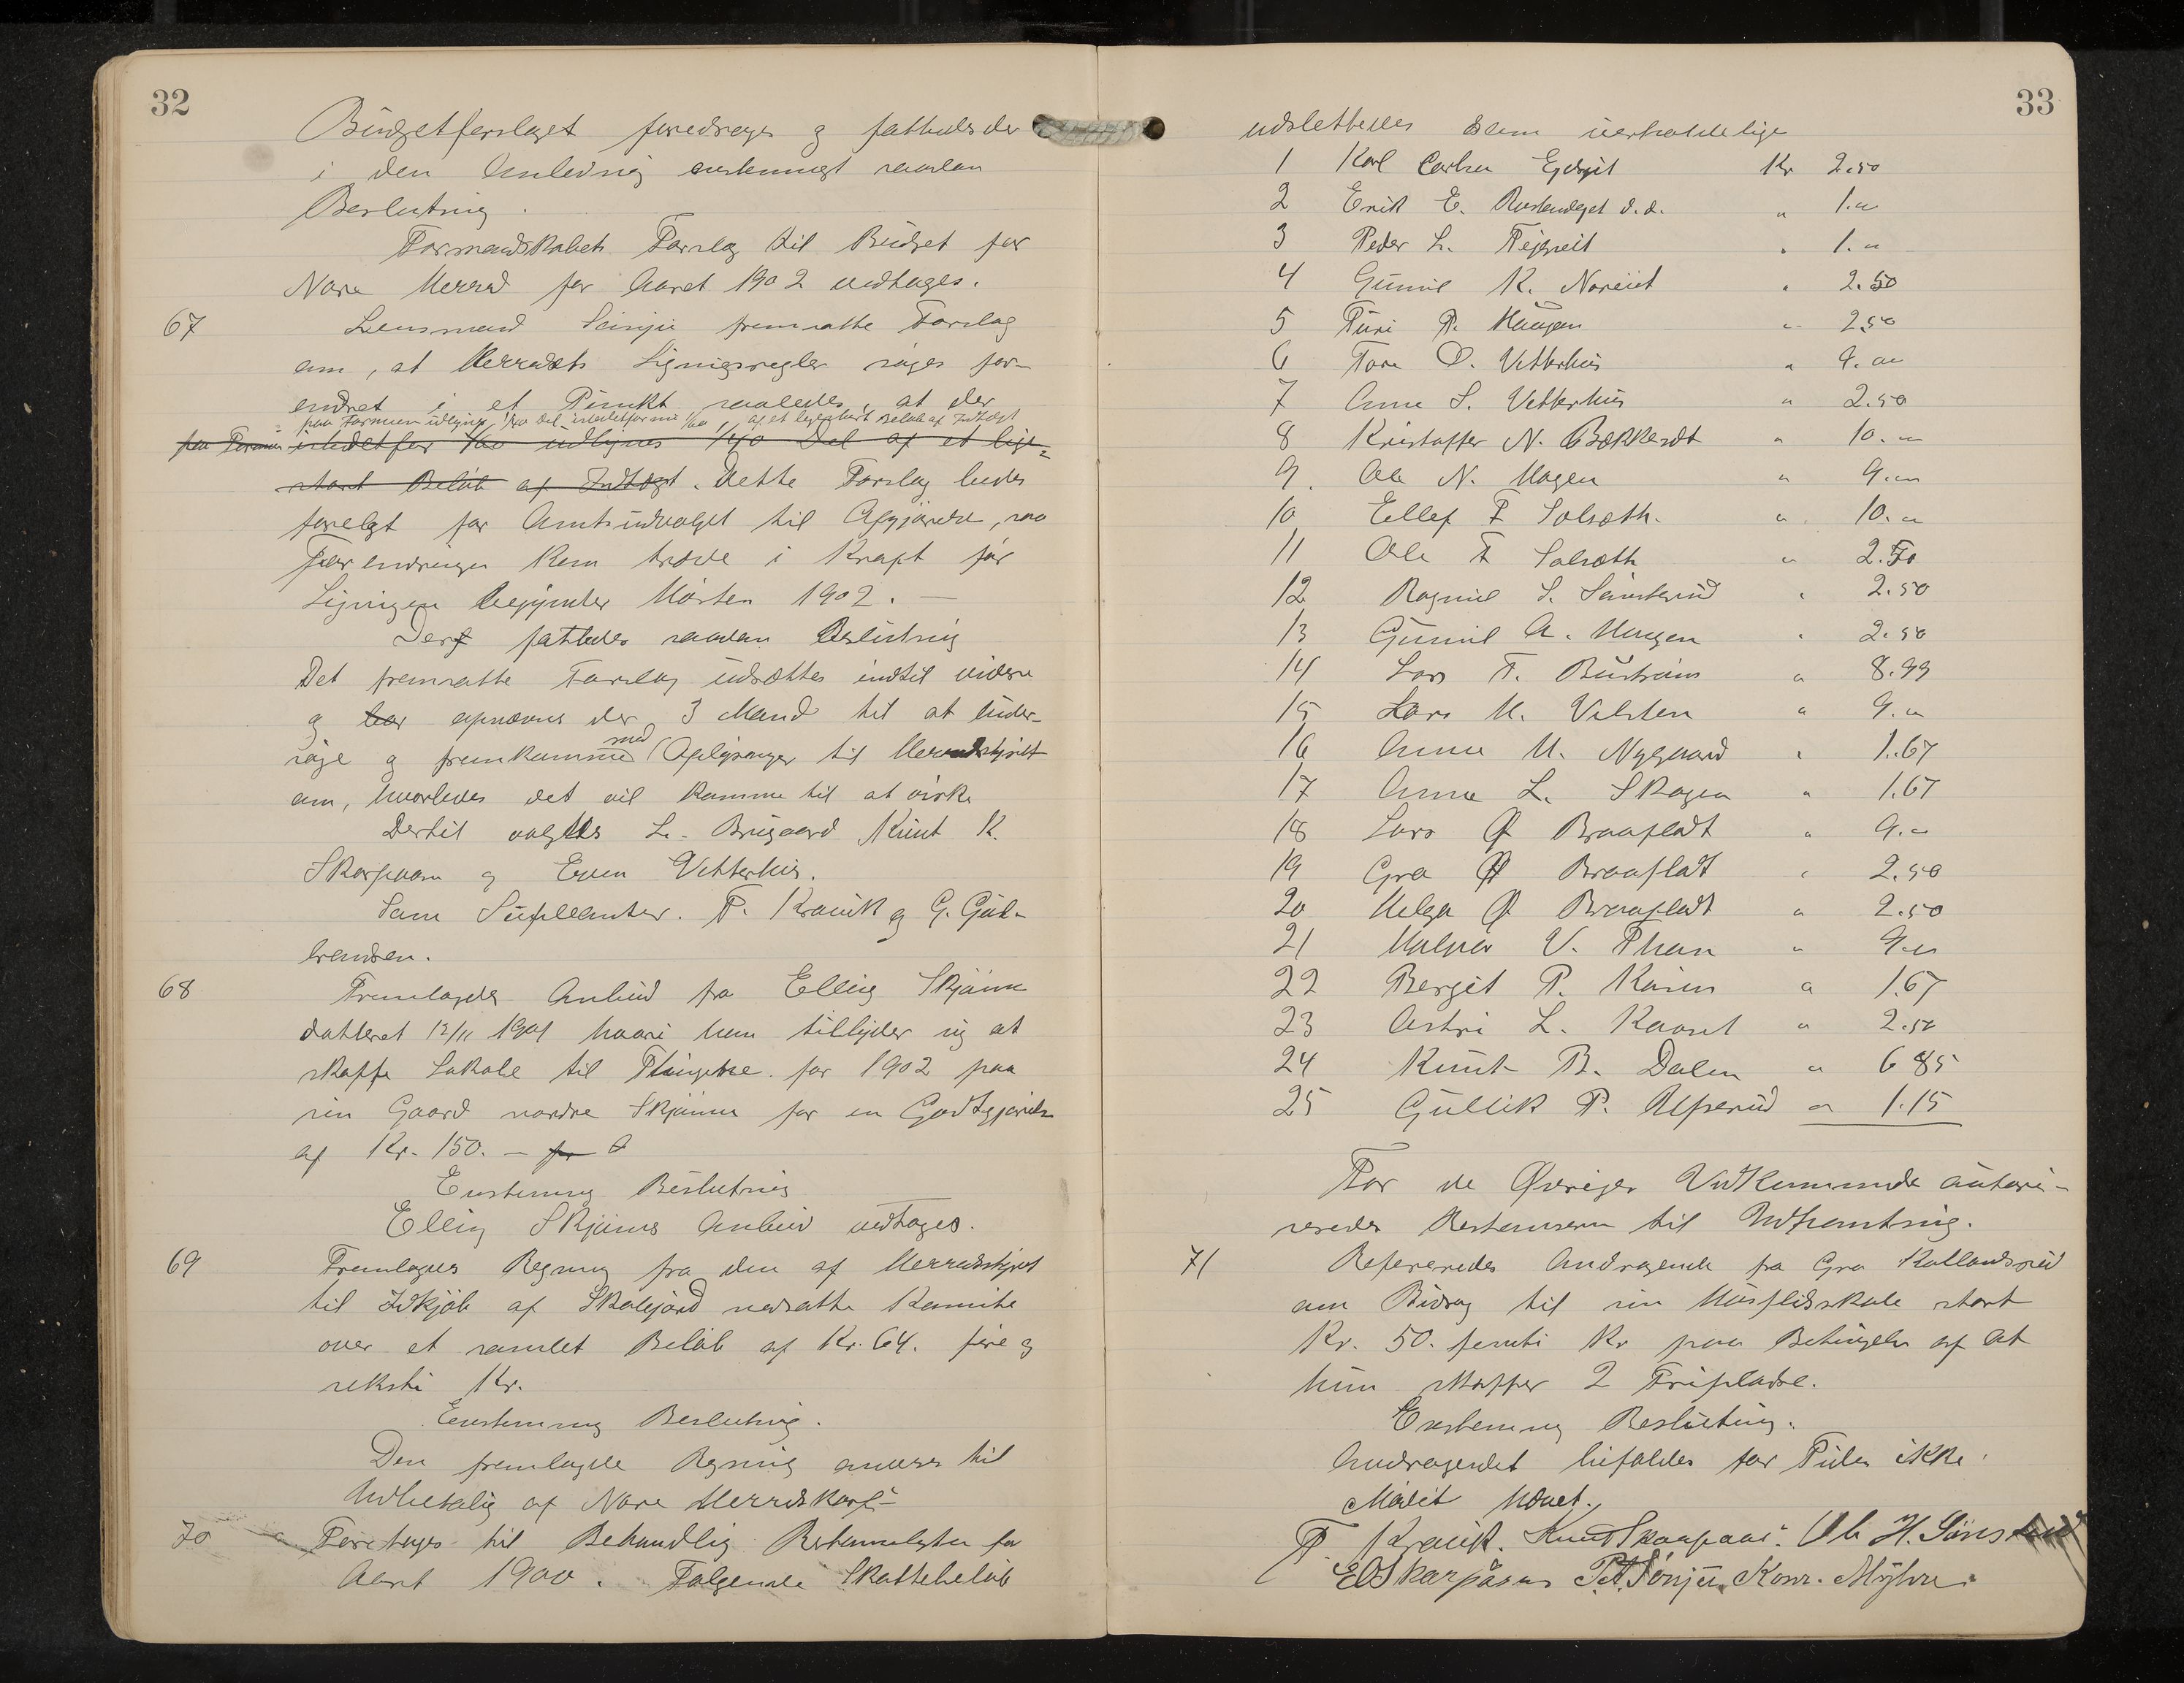 32
Budgetforslaget foredroges og fattedes der
i den Anledning enstemmigt saadan
Beslutning.
Formandskabets Forslag til Budget for
Nore Herred for Aaret 1902 vedtages.
67
Lensmand Sønju fremsatte Forslag
om, at Herredets Ligningsregler søges for-
endret i et Punkt saaledes, at der
paa Formuen udlignes 1/40 Del istedetfor nu 1/60, af et ligestort Beløb af Indtægt
paa Formuen istedetfor 1/60 udlignes 1/40 Del af et lige-
stort Beløb af Indtægt. Dette Forslag bedes
forelagt for Amtsudvalget til Afgjørelse, saa
Forendringen kan træde i Kraft før
Ligningen begynder Høsten 1902. —
Derf fattedes saadan Beslutning
Det fremsatte Forslag udsættes indtil videre
og har opnævnes der 3 Mand til at under-
søge og fremkomme med Oplysninger til Herredstyret
om, hvorledes det vil komme til at virke
Dertil valgtes L. Brugaard Knut K.
Skarpaasen og Even Vetterhus.
Som Supleanter. T. Kravik og G. Gul-
brandsen.
68
Fremlagdes Anbud fra Elling Skjønne
datteret 12/11 1901 hvori han tilbyder sig at
skaffe Lokale til Thingene for 1902 paa
sin Gaard nordre Skjønne for en Godtgjørelse
af Kr. 150. —
Enstemmig Beslutning
Elling Skjønnes Anbud vedtages.
69
Fremlagdes Regning fra den af Herredstyret
til Indkjøb af Skolejord nedsatte Komite
over et samlet Beløb af Kr. 64. fire og
seksti Kr.
Enstemmig Beslutning.
Den fremlagde Regning anvises til
Udbetaling af Nore Herredskasse
70
Foretoges til Behandling Restancelisten for
Aaret 1900. Følgende Skattebeløb
33
udslettedes som uerholdelige
1 Karl Carlsen Kr 2.50
2 Erik E. d.d. " 1."
3 Peder L. " 1."
4 Gunnil K. " 2.50
5 Turi P. Haugen " 2.50
6 Tore O. Vetterhus
7 Anne S. Vetterhus " 2.50
8 Kristoffer N. Bækkesdt " 10."
9. Ole N. Hagen " 9."
10 Ellef F Solsæth. " 10."
11 Ole F Solsæth " 2.50
12 Ragnil S. " 2.50
13 Gunnil A. Haugen " 2.50
14 Lars T. " 8.99
15 Lars H. " 9."
16 Anne H. Nygaard " 1.67
17 Anne L. Skogen " 1.67
18 Lars Ø Braafladt " 9."
19 Gro Ø Braafladt " 2.50
20 Helga Ø Braafladt " 2.50
21 Halvor V. Thon " 9."
22 Bergit P. " 1.67
23 Astri L. " 2.50
24 Knut B. Dalen " 6 85
25 Gullik P. Alfserud " 1.15
For de Øvriges Vedkommende autori-
seredes Restancerne til Indhentning.
71
Refereredes Andragende fra Gro Kollandsrud
om Bidrag til sin Husflidsskole stort
Kr. 50. femti Kr paa Betingelse af at
hun skaffer 2 Fripladse.
Enstemmig Beslutning.
Andragendet bifaldes for Tiden ikke.
Mødet hævet.
T Kravik. Knut Skarpaas. Ole H. Söns
EO Skarpåsen P.A. Sönju, Konr. Myhre.